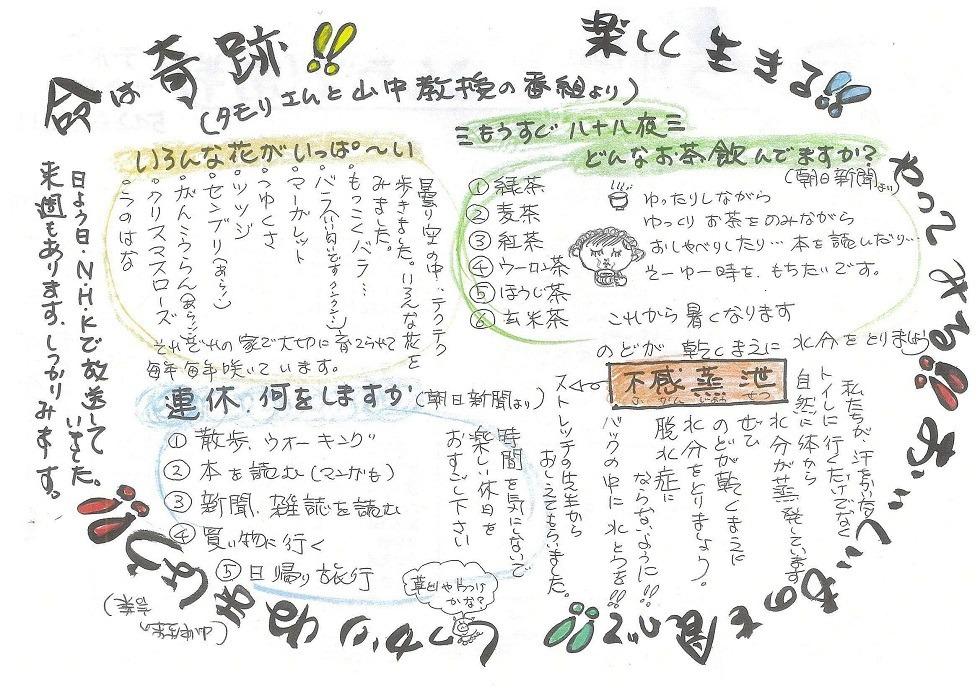 命は奇跡!!
(タモリさんと山中教授の番組より)
日よう日・N・H・Kで放送して
いました。
来週もあります。しっかりみます。
楽しく生きる!!
やってみる!!
おいしいものを食べて!!
しっかりねましょう!!
いろんな花がいっぱ~い
曇り空の中、テクテク
歩きました。いろんな花を
みました。
もっこくバラ…
バニラ(いい匂いです クンクン)
マーガレット
つゆくさ
ツツジ
センブリ(あらっ)
がんミウらん(あらっ)
クリスマスローズ
こうのはな
それぞれの家で大切に育てられて
毎年毎年咲いています。
もうすぐ八十八夜
どんなお茶飲んでますか?
(朝日新聞より)
① 緑茶
② 麦茶
③ 紅茶
④ ウーロン茶
⑤ ほうじ茶
⑥ 玄米茶
ゆったりしながら
ゆっくりお茶をのみながら
おしゃべりしたり…本を読んだり…
そーゆー時を、もちたいです。
これから暑くなります
のどが乾くまえに水分をとりましょう
不感蒸泄
ふ かん じょう せつ
私たちが、汗をかいたり
トイレに行くだけでなく
自然に体から
水分が蒸発しています
ぜひ
のどが乾くまえに
水分をとりましょう。
脱水症に
ならないように!!
バックの中に水とうを!!
ストレッチの先生から
おしえてもらいました。
連休、何をしますか(朝日新聞より)
① 散歩、ウオーキング
② 本を読む(マンガも)
③ 新聞、雑誌を読む
④ 買い物に行く
⑤ 日帰り旅行
時間を気にしないで
楽しい休日を
おすごし下さい
草とりやっつけ
かな?